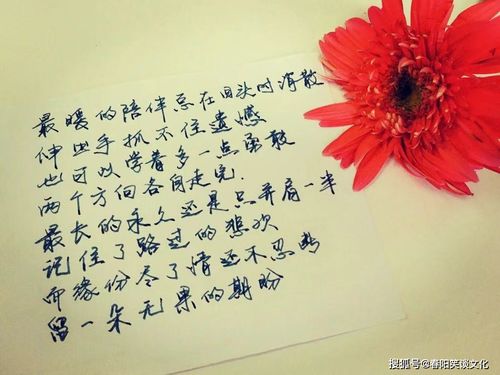 最暖的陪伴总在回头时消散
伸出手抓不住遗憾
也可以学着多一点勇敢
两个方向各自走完.
最长的永久还是只并肩一半
记住了路过的悲欢
而缘份尽了情还不忍断
留一朵无果的期盼
搜狐号@春阳笑谈文化